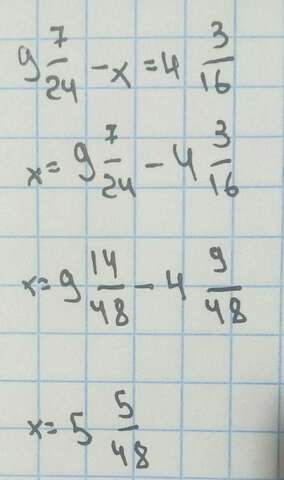 9 7/24 - x = 4 3/16
x = 9 7/24 - 4 3/16
x = 9 14/48 - 4 9/48
x = 5 5/48